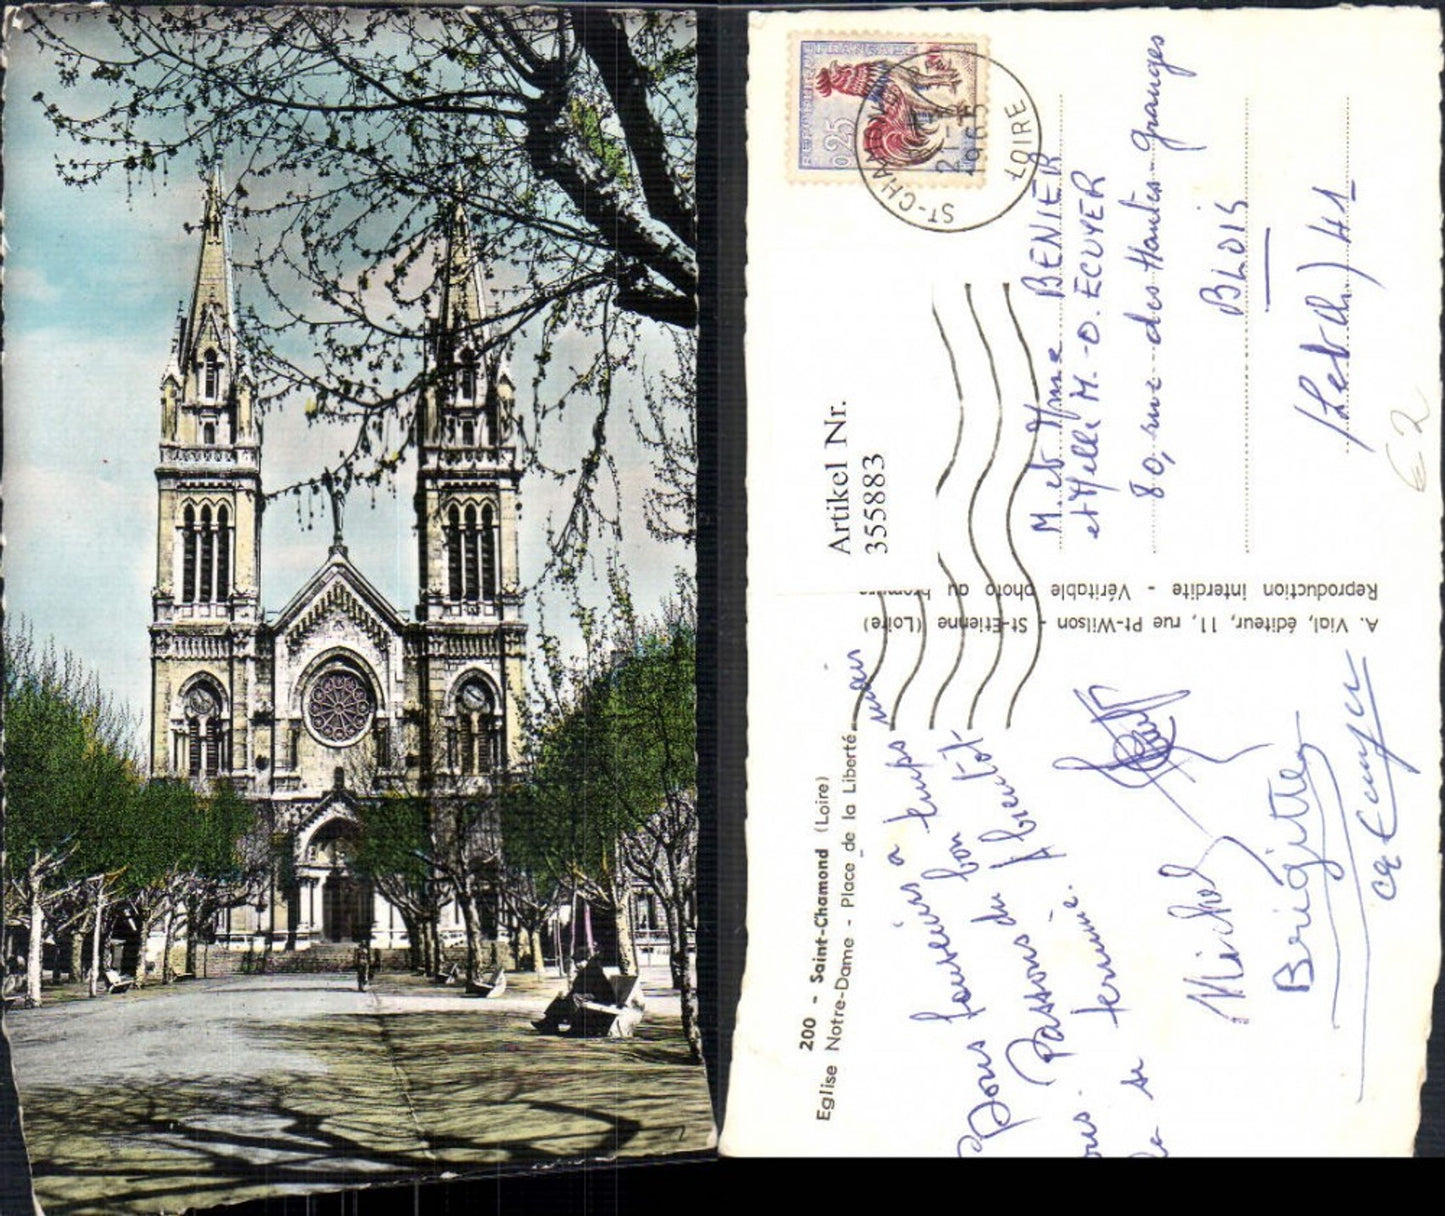 200 - Saint-Chamond (Loire)
Eglise Notre-Dame - Place de la Liberté
A. Vial, éditeur, 11, rue Pt-Wilson - St-Etienne (Loire)
Reproduction interdite - Véritable photo au
REPUBLIQUE FRANÇAISE
0,25
ST-CHAMOND
1965
LOIRE
Artikel Nr.
355883
M. et Mme BENIER
et Melle M.-O. ECUYER
80, rue des Hautes Granges
BLOIS
(Let Ch) 41
€ 2
à temps mais
bon
Passons du bientôt
se termine.
Michel
Brigitte
Ecuyer